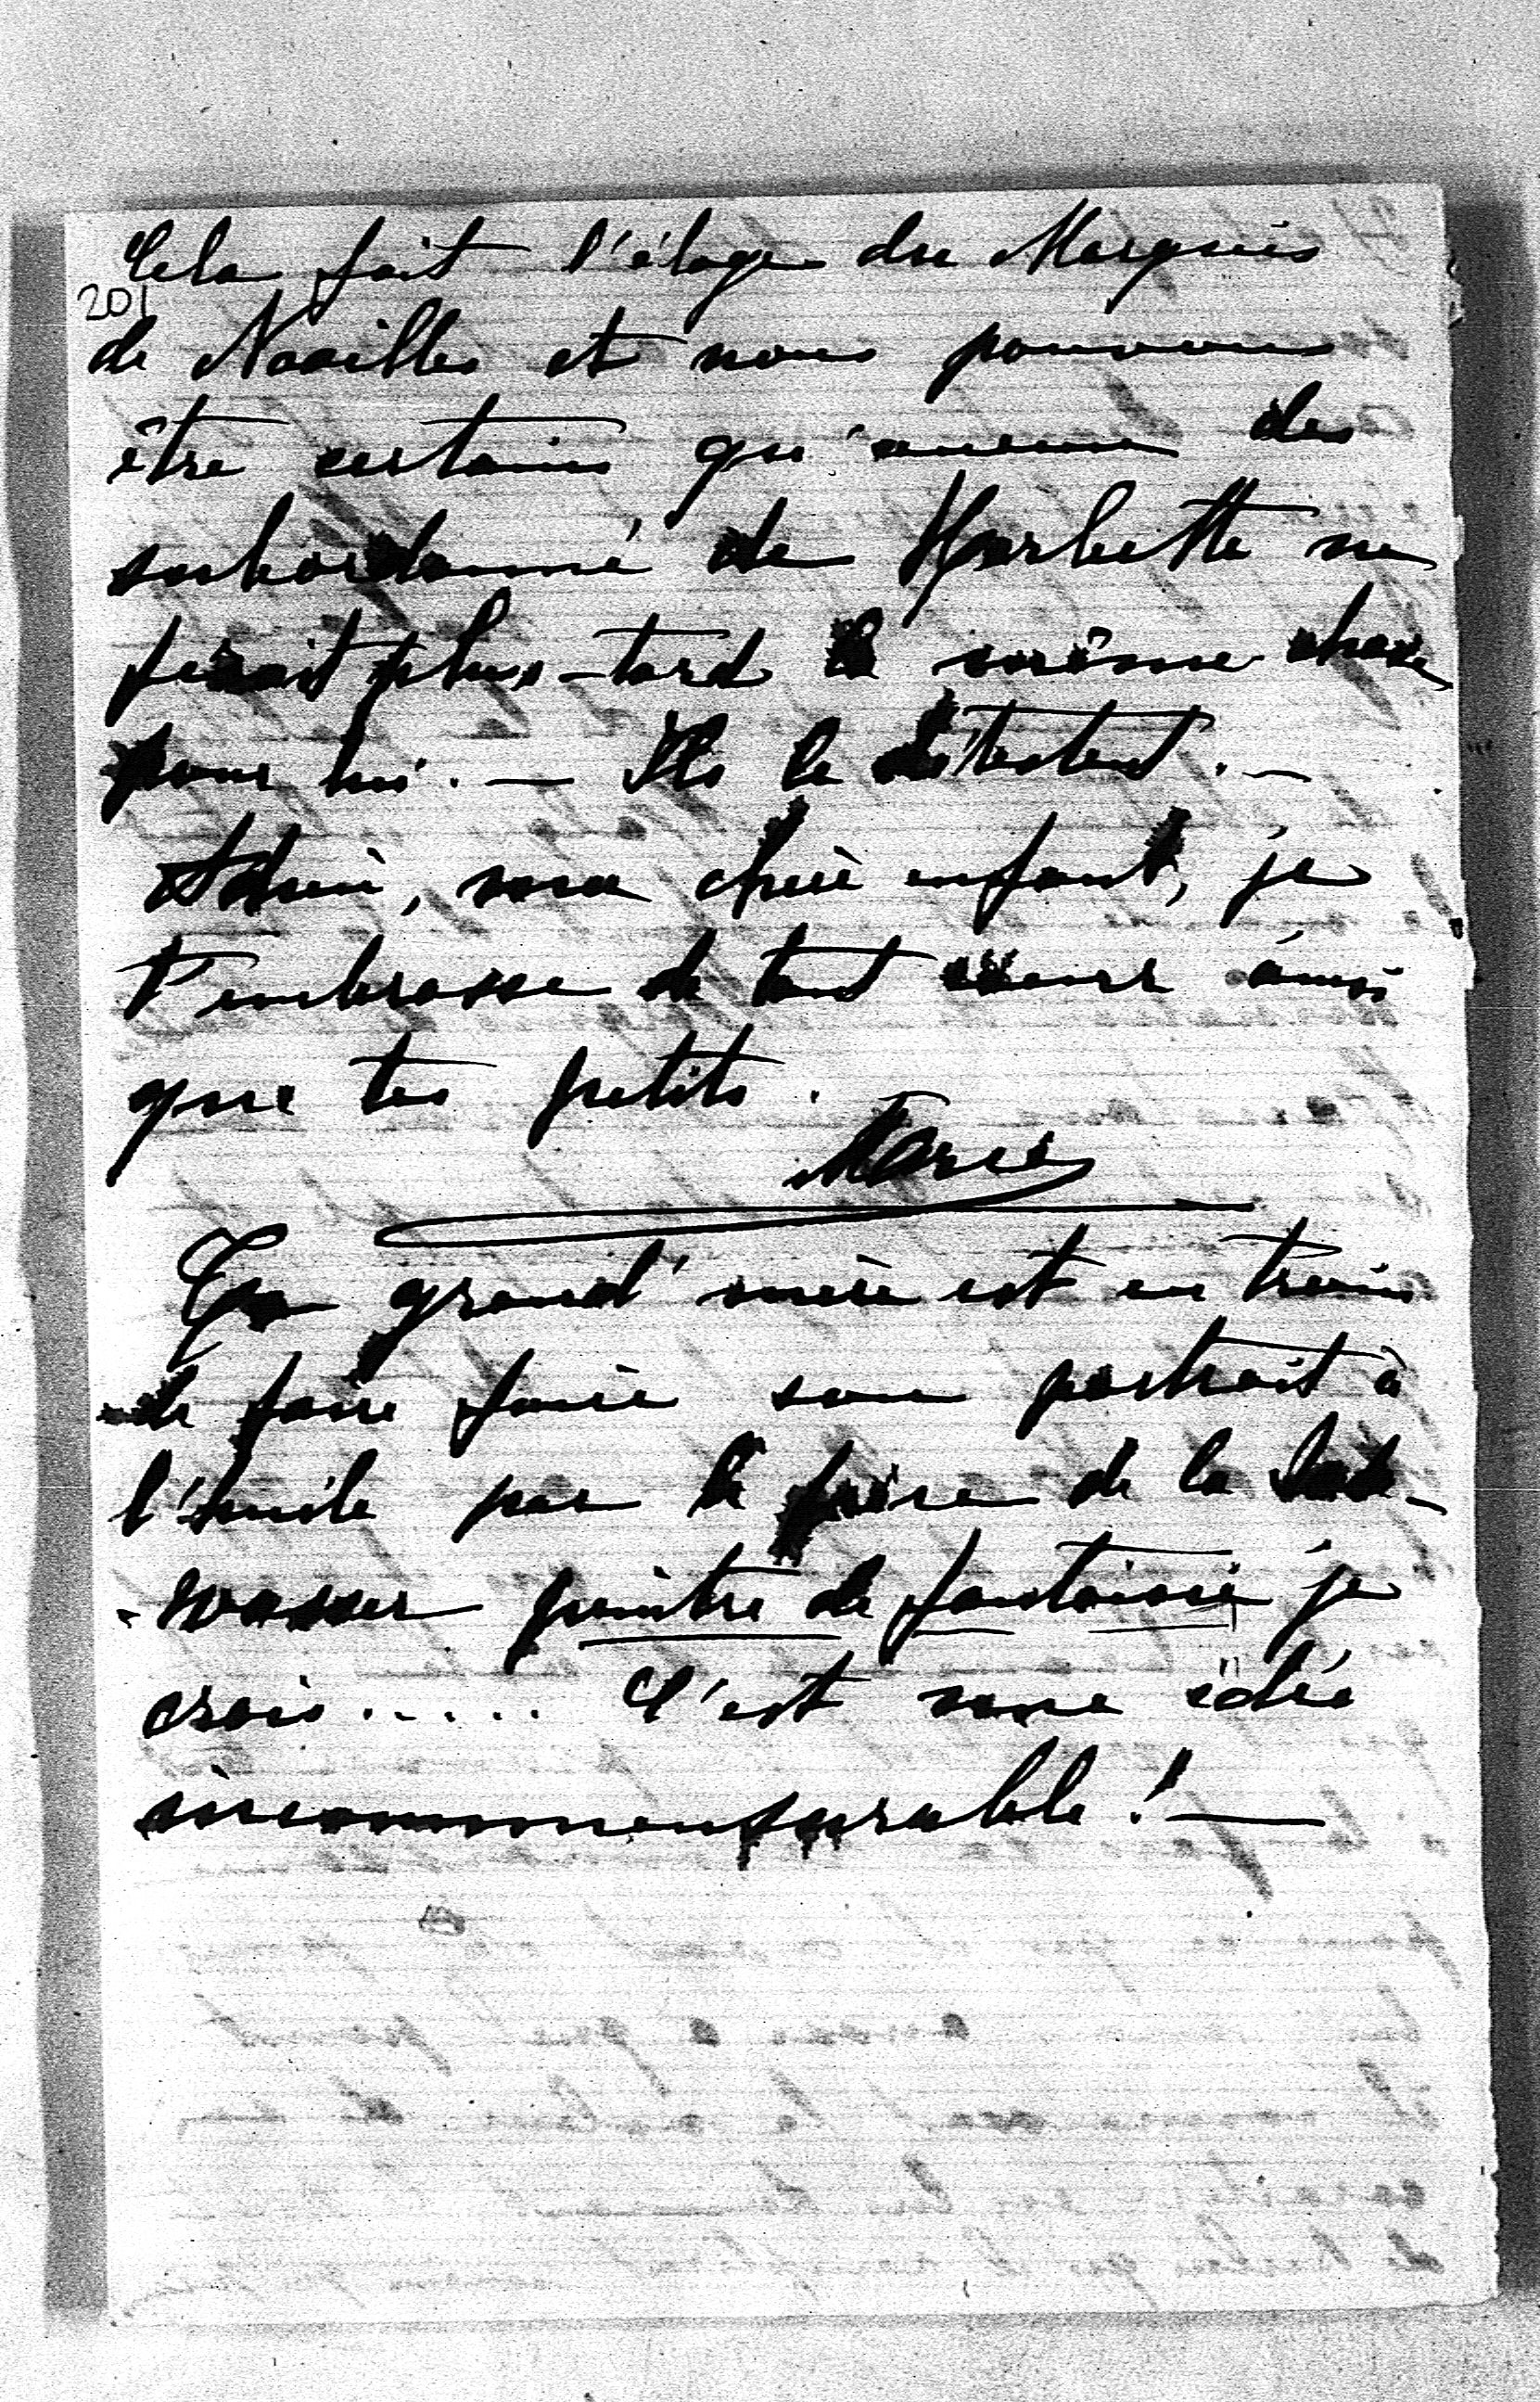 Cela fait l'éloge du Marquis
201
de Noailles et nous pouvons
être certains qu'aucun des
subordonné de Herbette ne
ferait plus-tard la même chose
pour lui. — Ils le détestent. —
Adieu, ma chère enfant, je
t'embrasse de tout coeur ainsi
que tes petits.
Marie
Ta grand'mère est en train
de faire faire son portrait à
l'huile par le frère de la
-wasser peintre de fantaisie je
crois..... C'est une idée
incommensurable! —